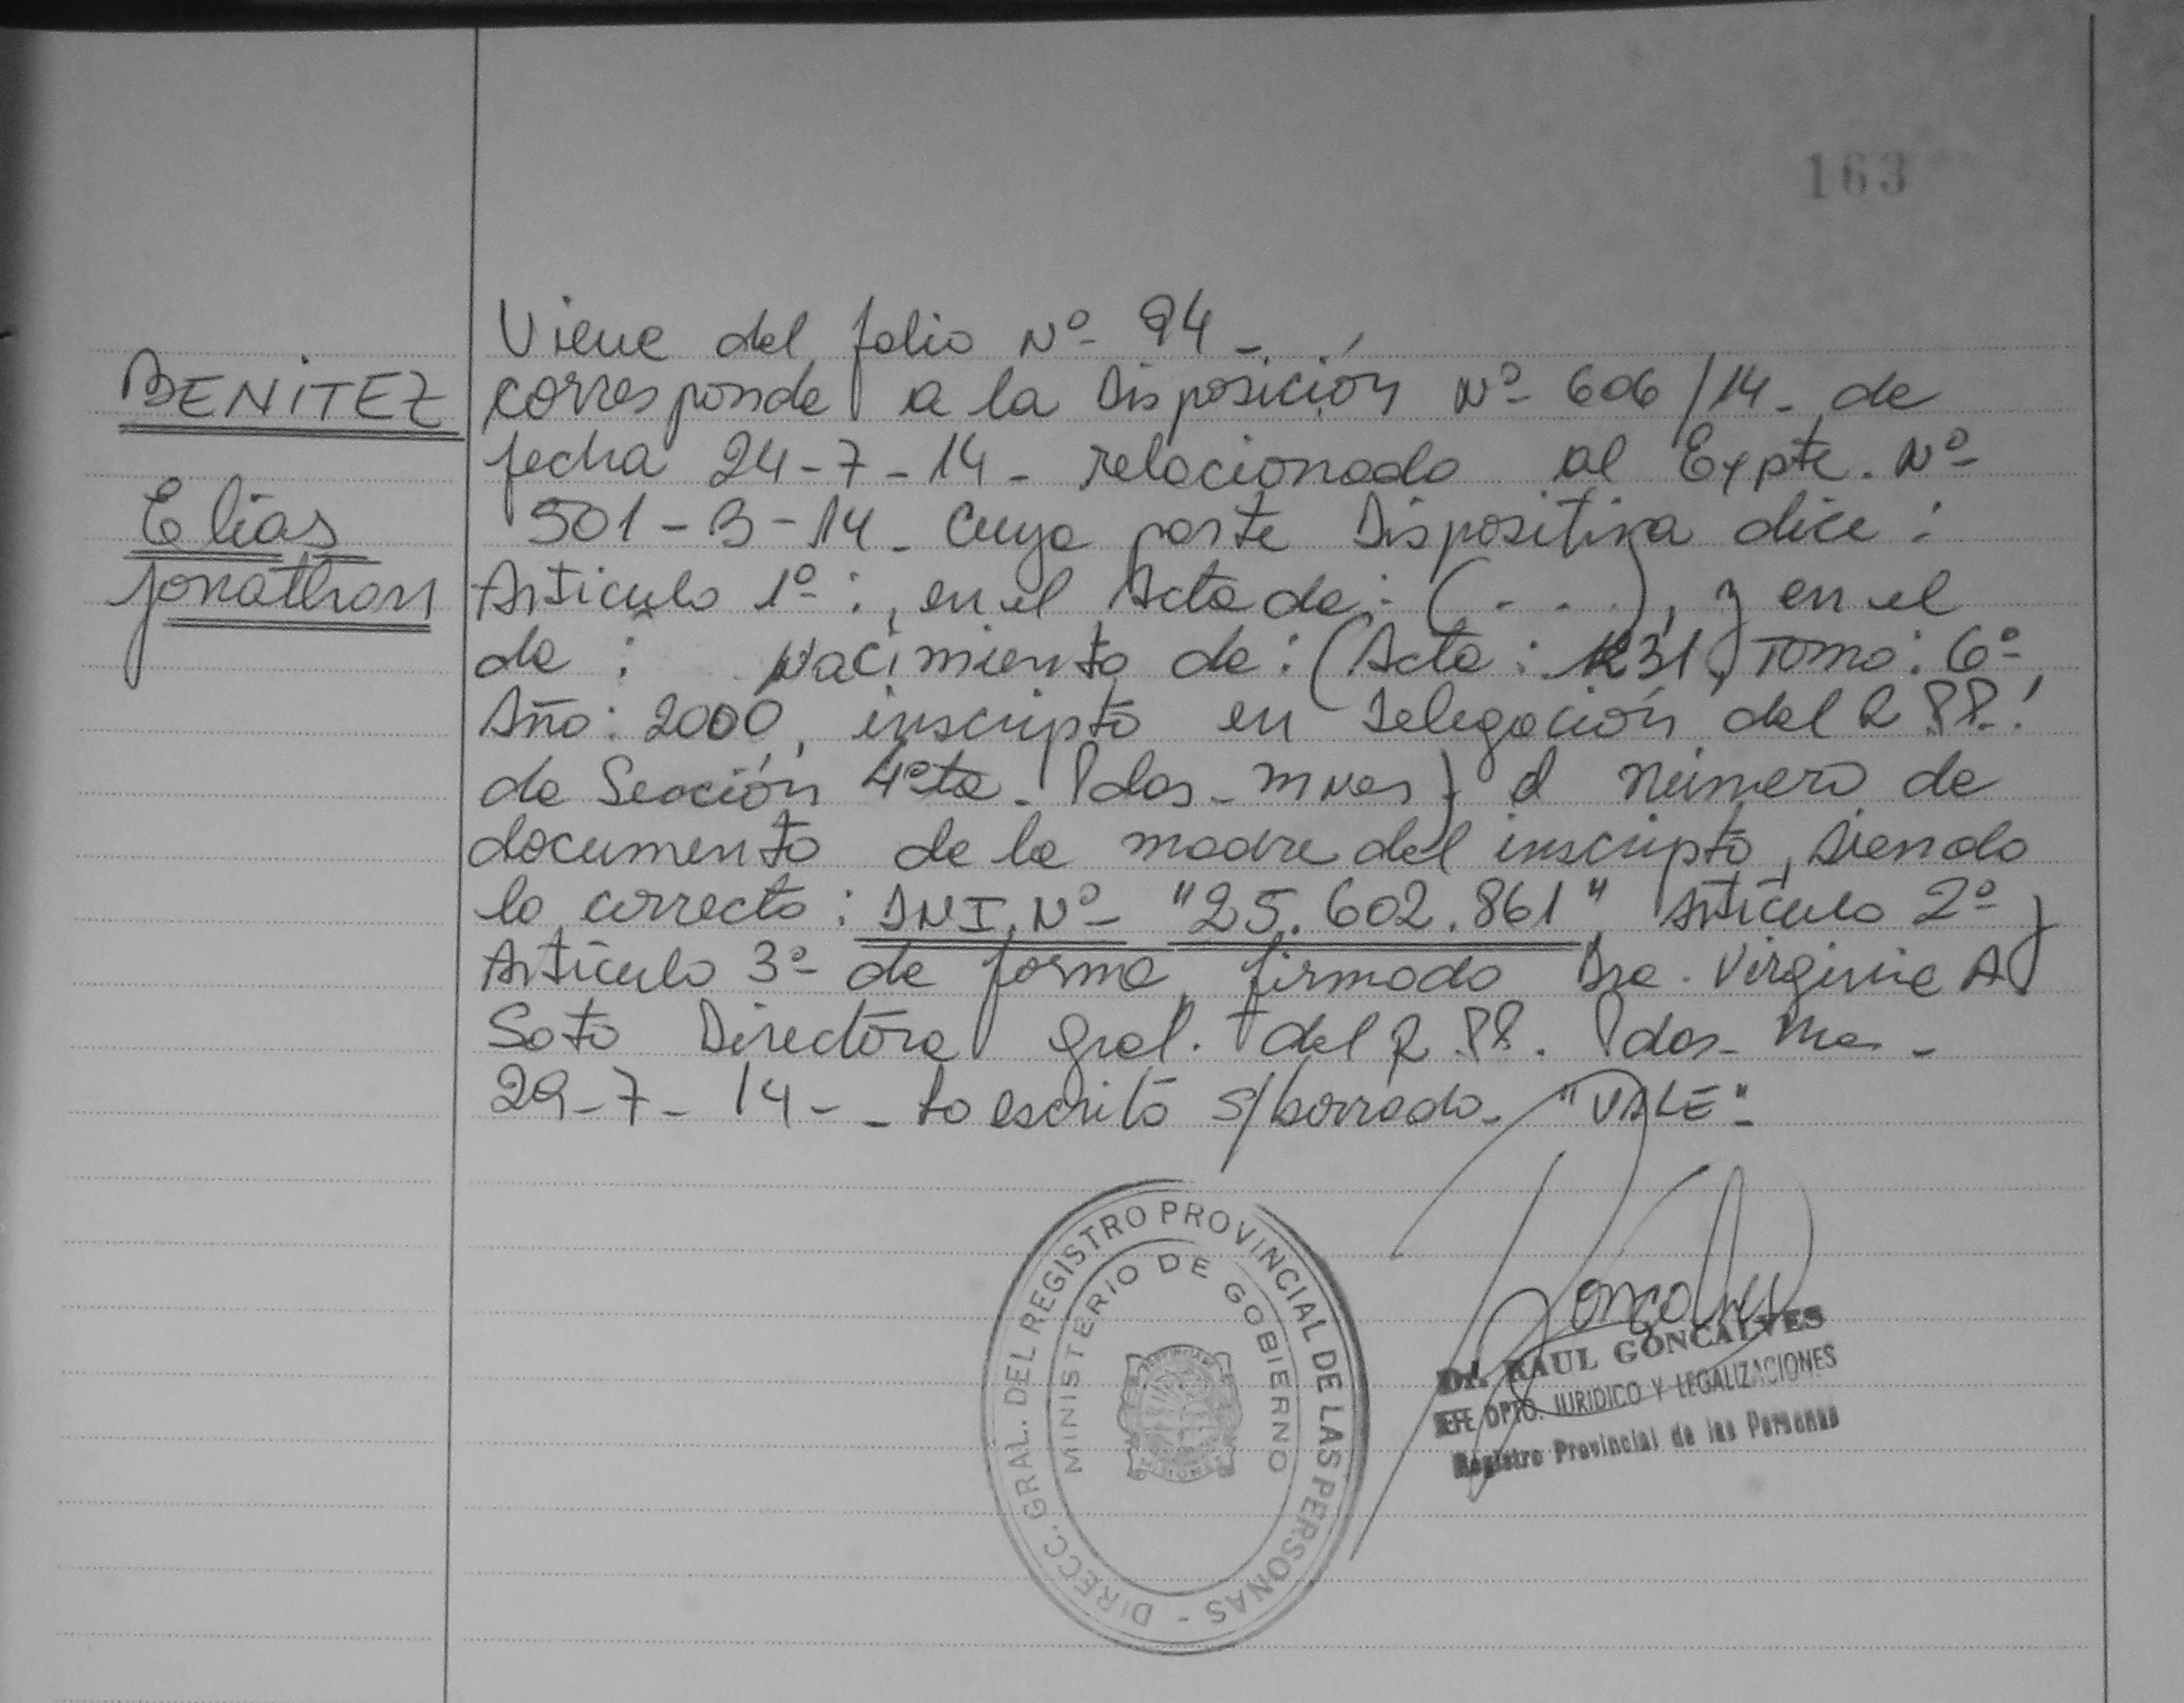 163
BENITEZ
Elias
Jonathan
Viene del folio Nº 94 -
corresponde a la Disposición Nº 606/14 - de
fecha 24-7-14 - relacionado al Expte. Nº
501-B-14 - cuya parte Dispositiva dice :
Articulo 1º : en el Acta de : (...), y en el
de : Nacimiento de : (Acta : 1231, Tomo : 6º
Año : 2000, inscripto en Delegación del R.P.P.
de Sección 4ºta - Pdas - Mnes) el número de
documento de la madre del inscripto, siendo
lo correcto : DNI. Nº "25.602.861" Artículo 2º y
Artículo 3º de forma, firmado Dra. Virginia A
Soto Directora Gral. del R.P.P. Pdas - Mnes -
29-7-14 - - Lo escrito s/borrado - "VALE" -
DIRECC. GRAL. DEL REGISTRO PROVINCIAL DE LAS PERSONAS -
MINISTERIO DE GOBIERNO
Goncalves
Dr. RAUL GONCALVES
JEFE DPTO. JURIDICO Y LEGALIZACIONES
Registro Provincial de las Personas